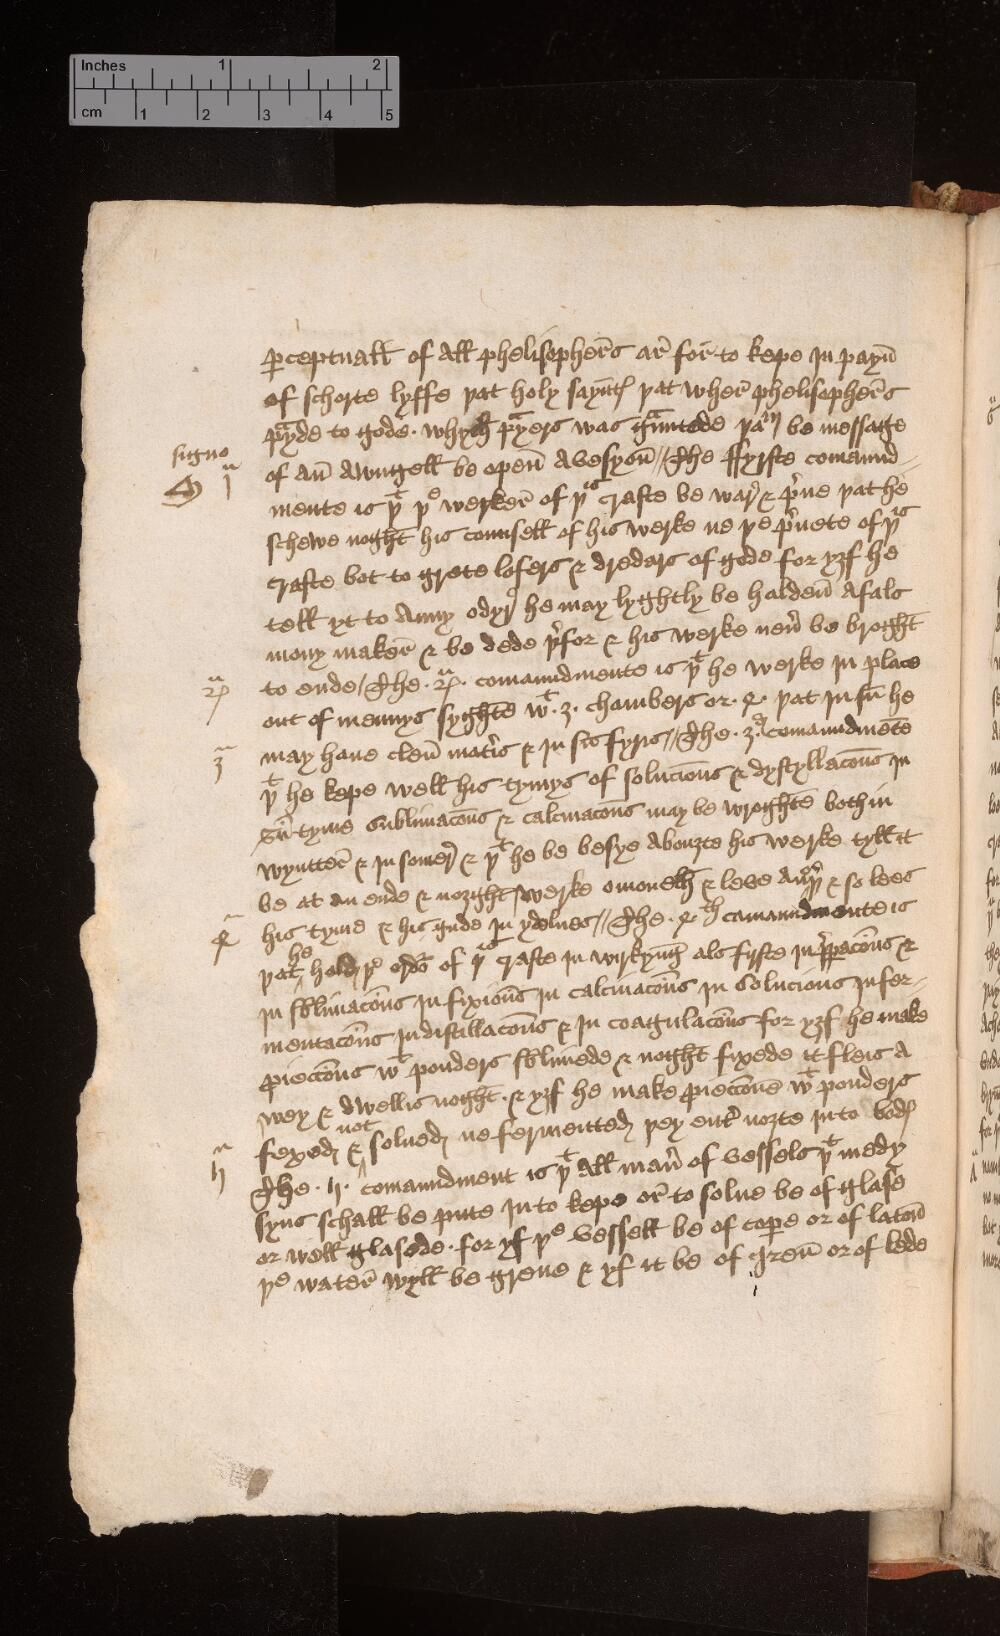 Inches 1 2
cm 1 2 3 4 5
p̱ceptuall of all phelisopher̄s ar̄ for to kepe in payn̄
of schorte lyffe yat holy sayntꝭ yat wher̄ phelisopher̄s
pᵃyde to gode · whych pᵃyers was gᵃuntede yāᵐ be message
signo
1ᵃ of an̄ awngell be open̄ a vesyon̄ // The ffyrste comannd-
mente is yᵗ yᵉ werker̄ of yⁱˢ crafte be war̄ & p̄ue yat he
schewe noght his counsell of his werke ne ye p̄uete of yⁱˢ
crafte bot to grete lofers & dredars of gode for yȝf he
tell yt to anny odyr̄ he may lyghtly be halden̄ a fals
mony maker̄ & be dede yʳfor & his werke neū be broght
2ᵃ to ende / The · 2ᵃ · comanndmente is yᵗ he werke in place
out of mennys syghte wᵗ · 3 · chambers or · 4 · yat in su̅ he
3ᵃ may haue clen̄ mat̄is & in su̅ fyris // The · 3ᵃ · comanndmēte
yᵗ he kepe well his tymys of soluciōns & dystyllacōns in
su̅ tyme sublimacōns & calcinacōns may be wroghte both in
wynter̄ & in somer̄ & yᵗ he be besye abouȝte his werke tyll it
be at an ende & noȝght werke o moneth & leve anoyʳ & so lees
4ᵃ his tyme & his gude in ydelnes // The · 4 · th comanndmente is
yat he holdꝭ yᵉ ordoʳ of yⁱˢ crafte in wirkyng als fyrste in p̄pacōns &
in sblimacōns in fixiōns in calcinacōns in soluciōns in fer-
mentacōns in distillacōns & in coagulacōns for yȝf he make
ꝓiectōns wᵗ pouders sblimede & noght fixede it fleis a
wey & dwellis noght · & yȝf he make ꝓiectōne wᵗ pouders
fexedꝭ & not soluedꝭ ne fermentedꝭ yey ent̄ noȝte in to bodꝭ
5ᵃ The · 5 · comanndment is yᵗ all man̄ of vessels yᵗ medy
syns schall be pute in to kepe or̄ to solue be of glase
or well glasede · for yf yᵉ vessell be of cope or of laton̄
yᵉ water̄ wyll be grene & yf it be of Iren̄ or of lede